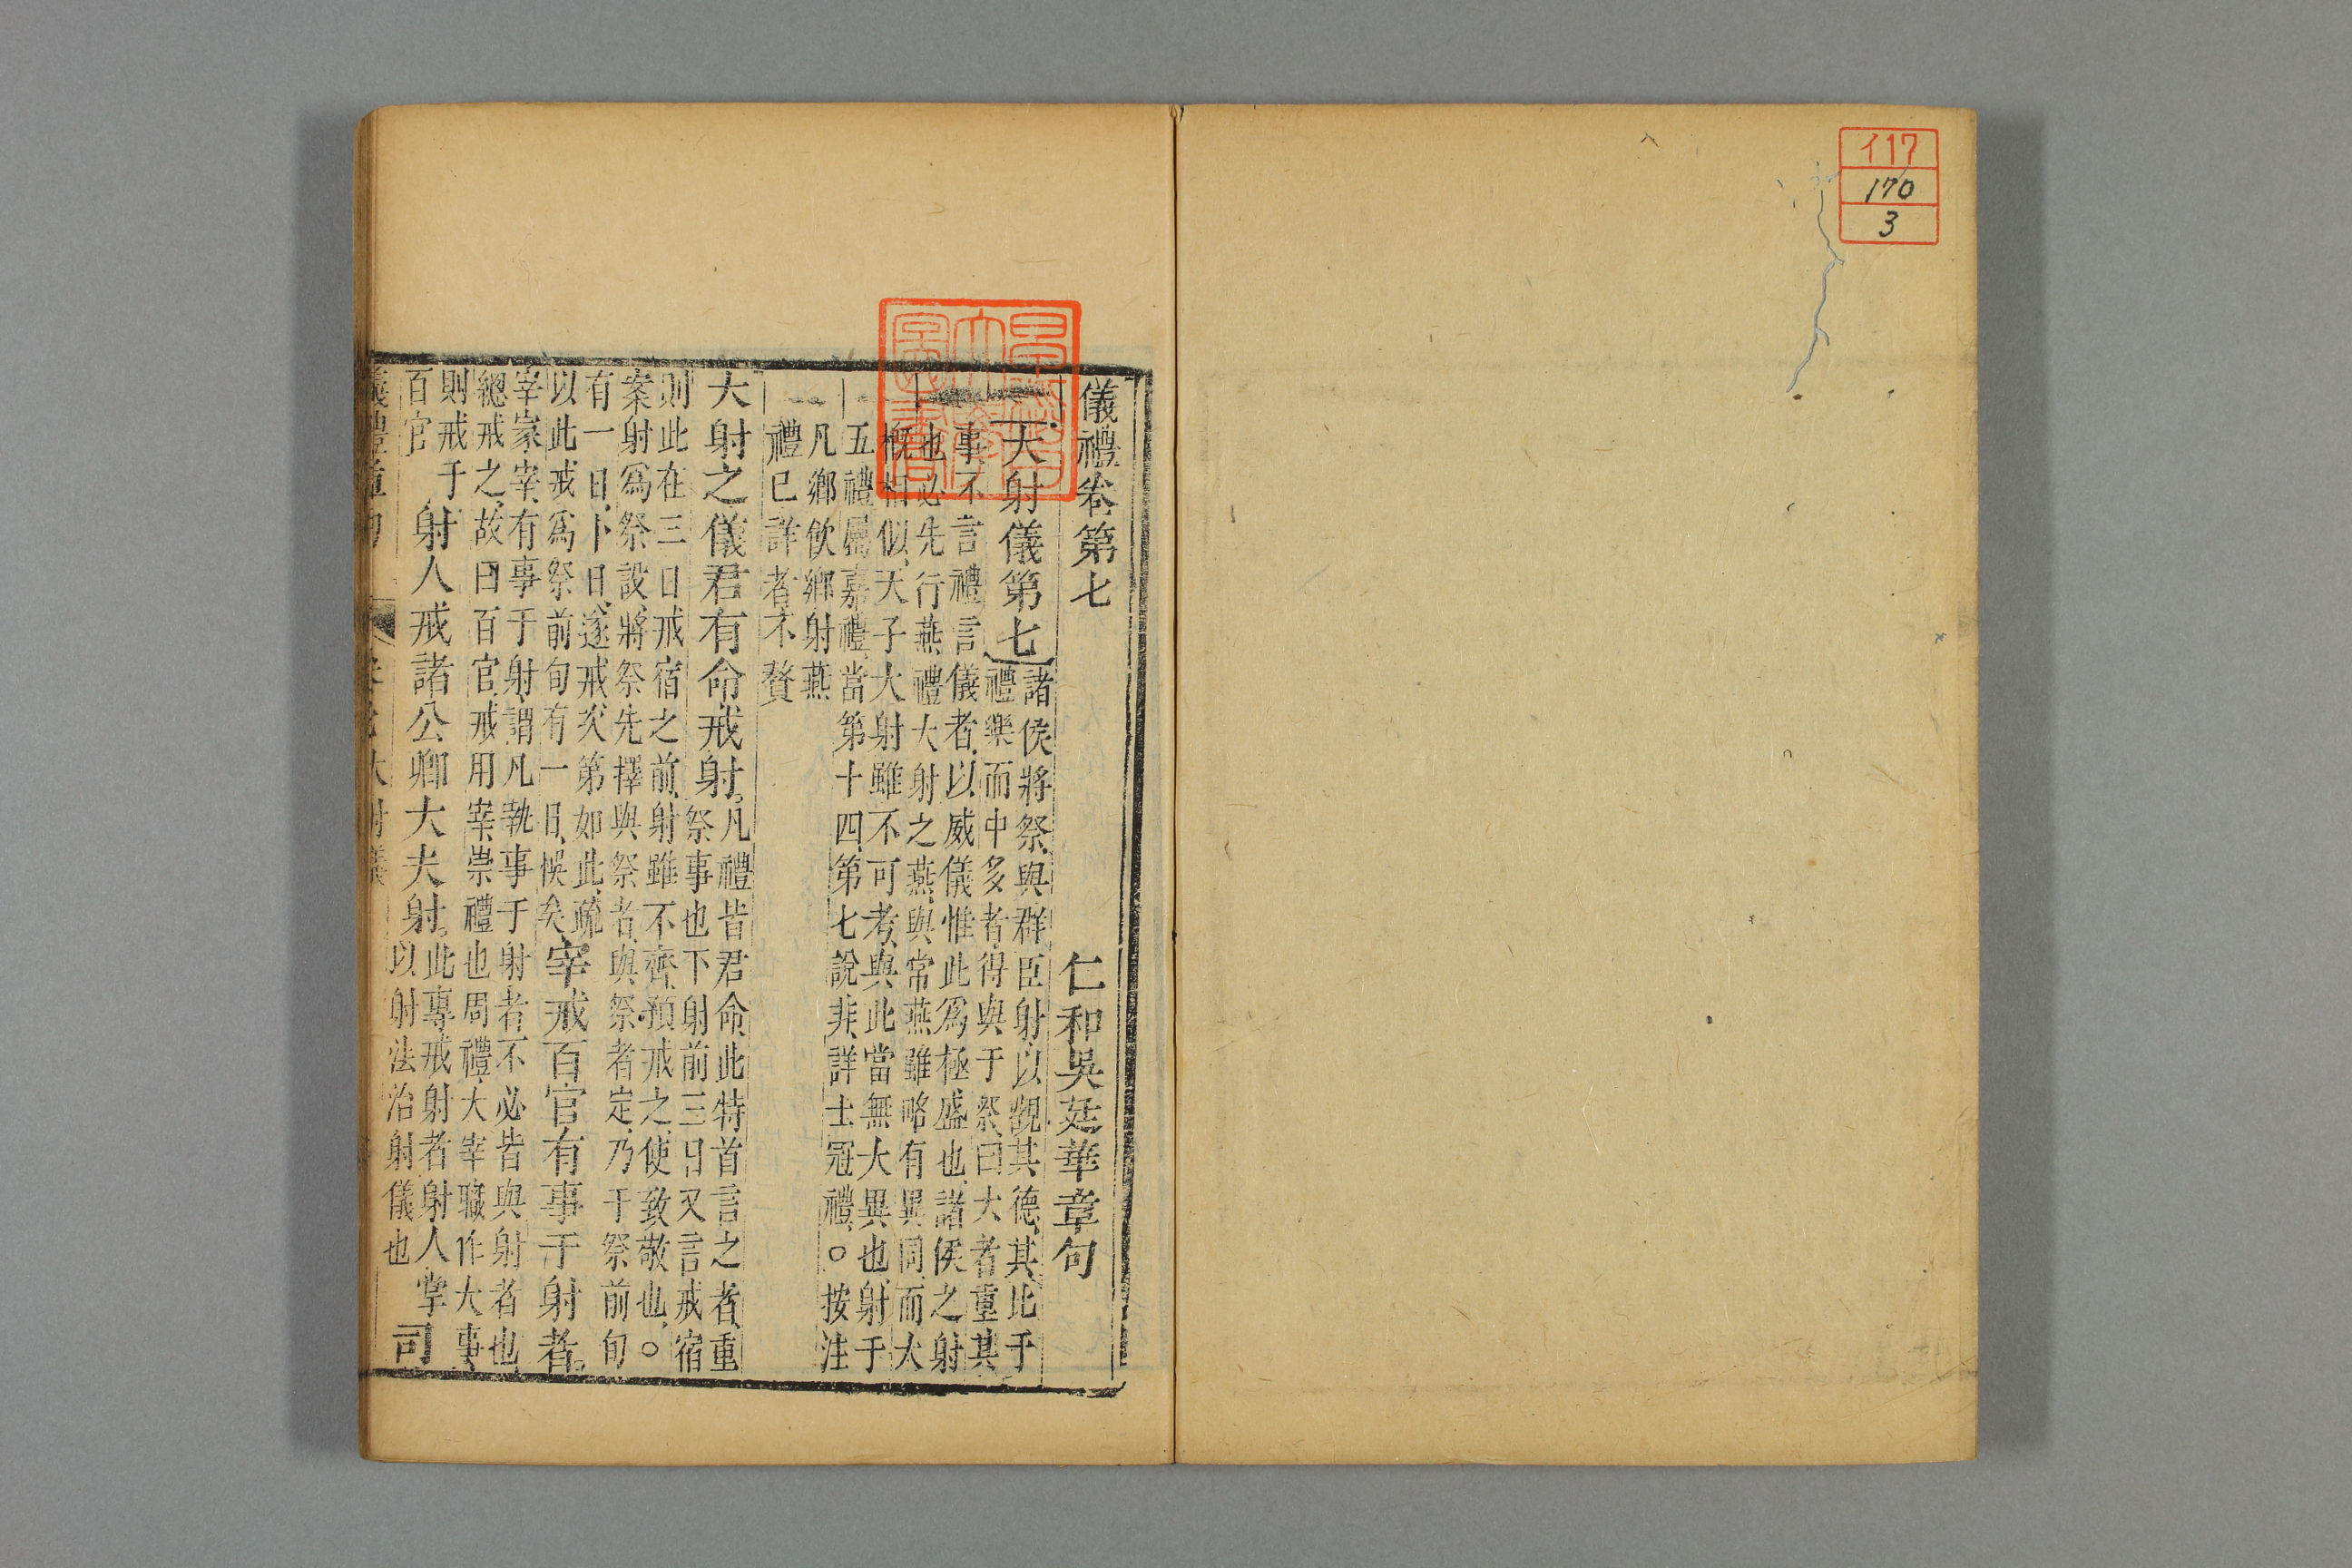 イ17
170
3
儀禮卷第七
仁和吳廷華章句
大射儀第七
諸侯將祭與群臣射以觀其德其比于
禮樂而中多者得與于祭曰大者重其
事不言禮言儀者以威儀惟此為極盛也諸侯之射
也必先行燕禮大射之燕與常燕雖略有異同而大
概相似天子大射雖不可考與此當無大異也射于
五禮屬嘉禮當第十四第七說非詳士冠禮○按注
凡鄉飲鄉射燕
禮已詳者不贅
大射之儀君有命戒射
凡禮皆君命此特首言之者重
祭事也下射前三日又言戒宿
則此在三日戒宿之前射雖不齊預戒之使致敬也○
案射爲祭設將祭先擇與祭者與祭者定乃于祭前旬
有一日卜日遂戒次第如此疏
以此戒爲祭前旬有一日悞矣
宰戒百官有事于射者
宰冢宰有事于射謂凡執事于射者不必皆與射者也
總戒之故曰百官戒用宰崇禮也周禮大宰職作大事
則戒于
百官
射人戒諸公卿大夫射
此專戒射者射人掌
以射法治射儀也
司